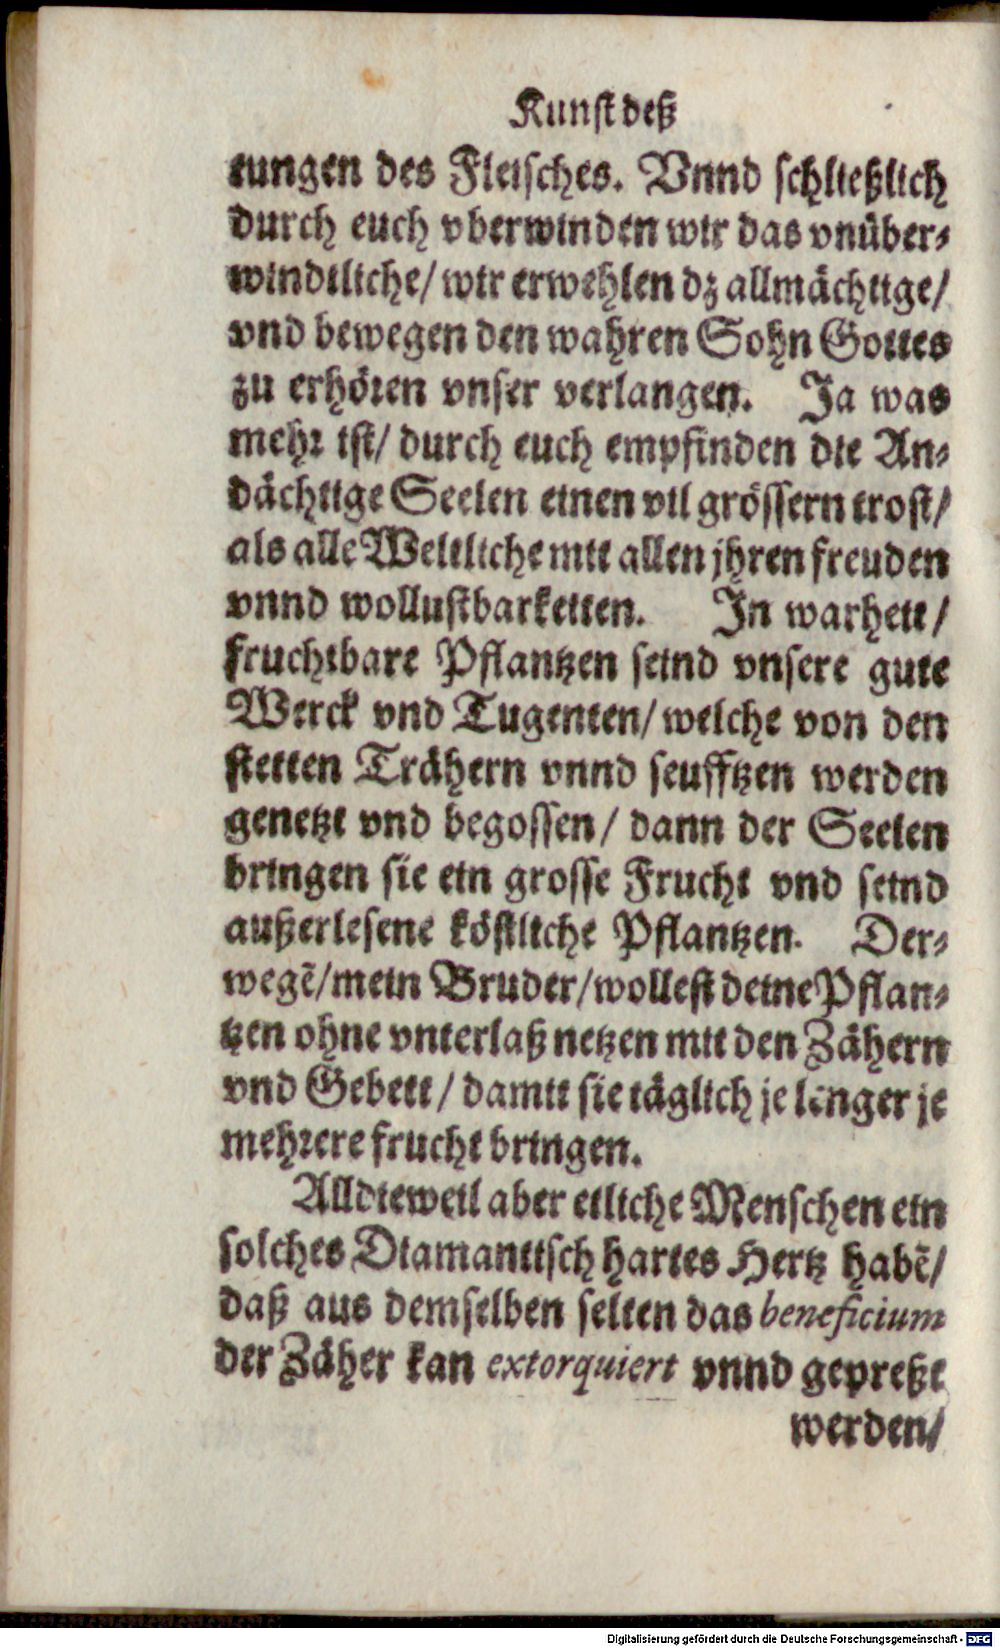 Kunst deß
tungen des Fleisches. Vnnd schließlich
durch euch vberwinden wir das vnüber-
windtliche/ wir erwehlen dz allmächtige/
vnd bewegen den wahren Sohn Gottes
zu erhören vnser verlangen. Ja was
mehr ist/ durch euch empfinden die An-
dächtige Seelen einen vil grössern trost/
als alle Weltliche mit allen jhren freuden
vnnd wollustbarkeiten. In warheit/
fruchtbare Pflantzen seind vnsere gute
Werck vnd Tugenten/ welche von den
stetten Trähern vnnd seufftzen werden
genetzt vnd begossen/ dann der Seelen
bringen sie ein grosse Frucht vnd seind
außerlesene köstliche Pflantzen. Der-
wegē/ mein Bruder/ wollest deine Pflan-
tzen ohne vnterlaß netzen mit den Zähern
vnd Gebett/ damit sie täglich je lenger je
mehrere frucht bringen.
Alldieweil aber etliche Menschen ein
solches Diamantisch hartes Hertz habē/
daß aus demselben selten das beneficium
der Zäher kan extorquiert vnnd gepreßt
werden/
Digitalisierung gefördert durch die Deutsche Forschungsgemeinschaft - DFG